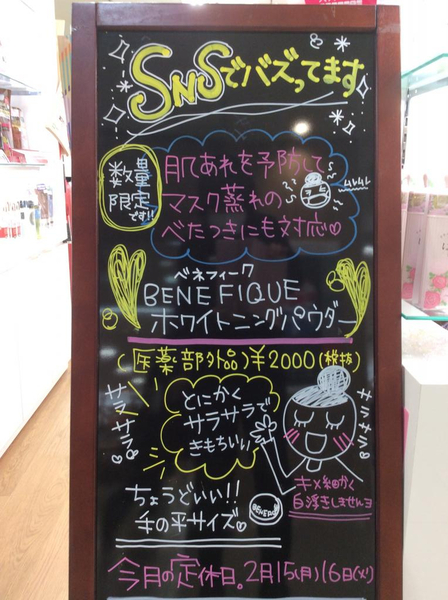 SNSでバズってます
数量
限定
です!!
肌あれを予防して
マスク蒸れの
べたつきにも対応♡
ムレムレ
ベネフィーク
BENEFIQUE
ホワイトニングパウダー
(医薬部外品)¥2000(税抜)
サラ
サラ
とにかく
サラサラで
きもちいい
サラサラ
キメ細かく
白浮きしませんヨ
ちょうどいい!!
手の平サイズ♡
今月の定休日。2月15(月)16日(火)